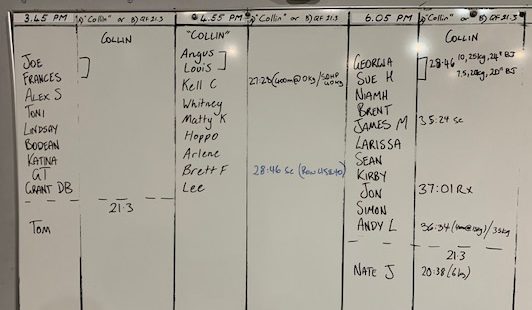 3.45 PM A) "Collin" or B) QF 21.3
COLLIN
JOE
FRANCES
ALEX S
TONI
LINDSAY
BODEAN
KATINA
GT
GRANT DB
21.3
TOM
4.55 PM A) "Collin" or B) QF 21.3
"COLLIN"
Angus
Louis
Kell C 27:23
Whitney
Matty K
Hoppo
Arlene
Brett F 28:46 Sc
Lee
6.05 PM A) "Collin" or B) QF 21.3
COLLIN
GEORGIA 28:46 10, 25kg, 24" BJ
SUE H 7.5, 20kg, 20" BJ
NIAMH
BRENT
JAMES M 35:24 Sc
LARISSA
SEAN
KIRBY
JON 37:01 Rx
SIMON
ANDY L 36:34 /35kg
21.3
NATE J 20:38